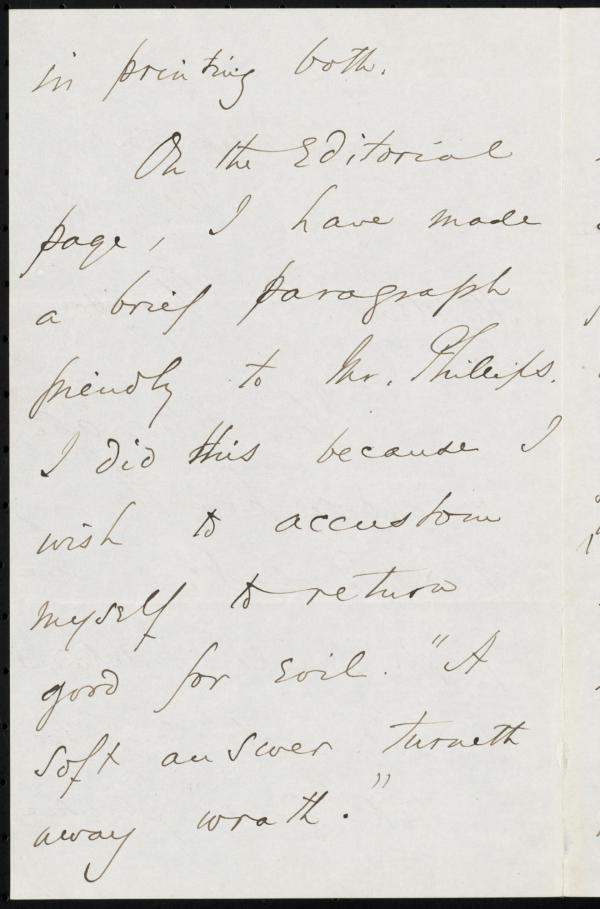 in printing both.
On the Editorial
page, I have made
a brief paragraph
friendly to Mr. Phillips.
I did this because I
wish to accustom
myself to return
good for evil. "A
soft answer turneth
away wrath."